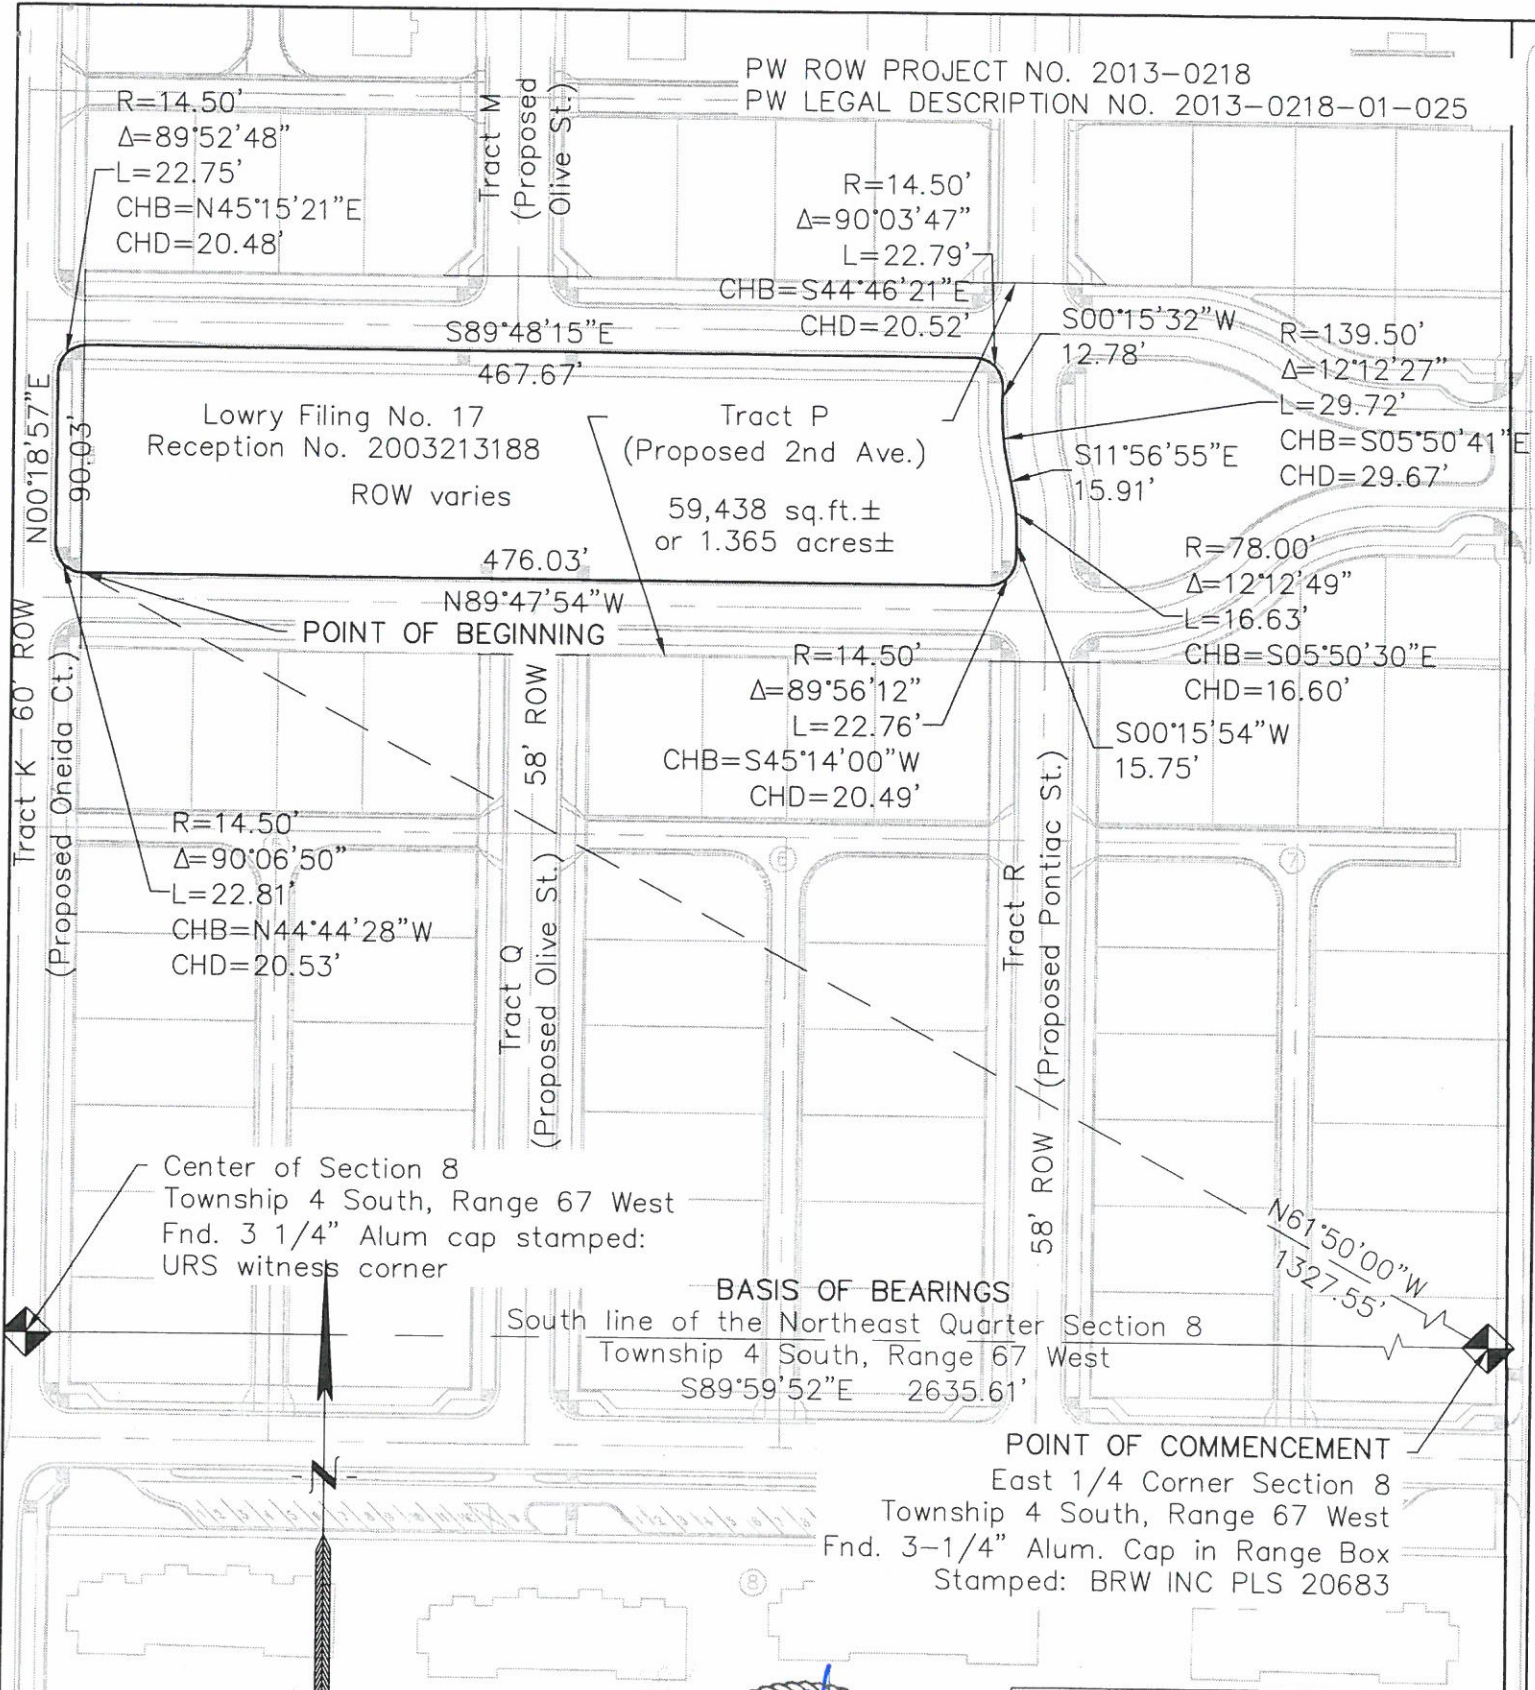 PW ROW PROJECT NO. 2013-0218
PW LEGAL DESCRIPTION NO. 2013-0218-01-025
R=14.50'
Δ=89°52'48"
L=22.75'
CHB=N45°15'21"E
CHD=20.48'
Tract M
(Proposed
Olive St.)
R=14.50'
Δ=90°03'47"
L=22.79'
CHB=S44°46'21"E
CHD=20.52'
S00°15'32"W
12.78'
R=139.50'
Δ=12°12'27"
L=29.72'
CHB=S05°50'41"E
CHD=29.67'
S89°48'15"E
467.67'
N00°18'57"E
90.03'
Lowry Filing No. 17
Reception No. 2003213188
ROW varies
Tract P
(Proposed 2nd Ave.)
59,438 sq.ft.±
or 1.365 acres±
S11°56'55"E
15.91'
476.03'
N89°47'54"W
POINT OF BEGINNING
R=78.00'
Δ=12°12'49"
L=16.63'
CHB=S05°50'30"E
CHD=16.60'
R=14.50'
Δ=89°56'12"
L=22.76'
CHB=S45°14'00"W
CHD=20.49'
S00°15'54"W
15.75'
Tract K 60' ROW
(Proposed Oneida Ct.)
R=14.50'
Δ=90°06'50"
L=22.81'
CHB=N44°44'28"W
CHD=20.53'
58' ROW
Tract Q
(Proposed Olive St.)
6
7
Tract R
(Proposed Pontiac St.)
58' ROW
Center of Section 8
Township 4 South, Range 67 West
Fnd. 3 1/4" Alum cap stamped:
URS witness corner
N61°50'00"W
1327.55'
BASIS OF BEARINGS
South line of the Northeast Quarter Section 8
Township 4 South, Range 67 West
S89°59'52"E 2635.61'
N
POINT OF COMMENCEMENT
East 1/4 Corner Section 8
Township 4 South, Range 67 West
Fnd. 3-1/4" Alum. Cap in Range Box
Stamped: BRW INC PLS 20683
8